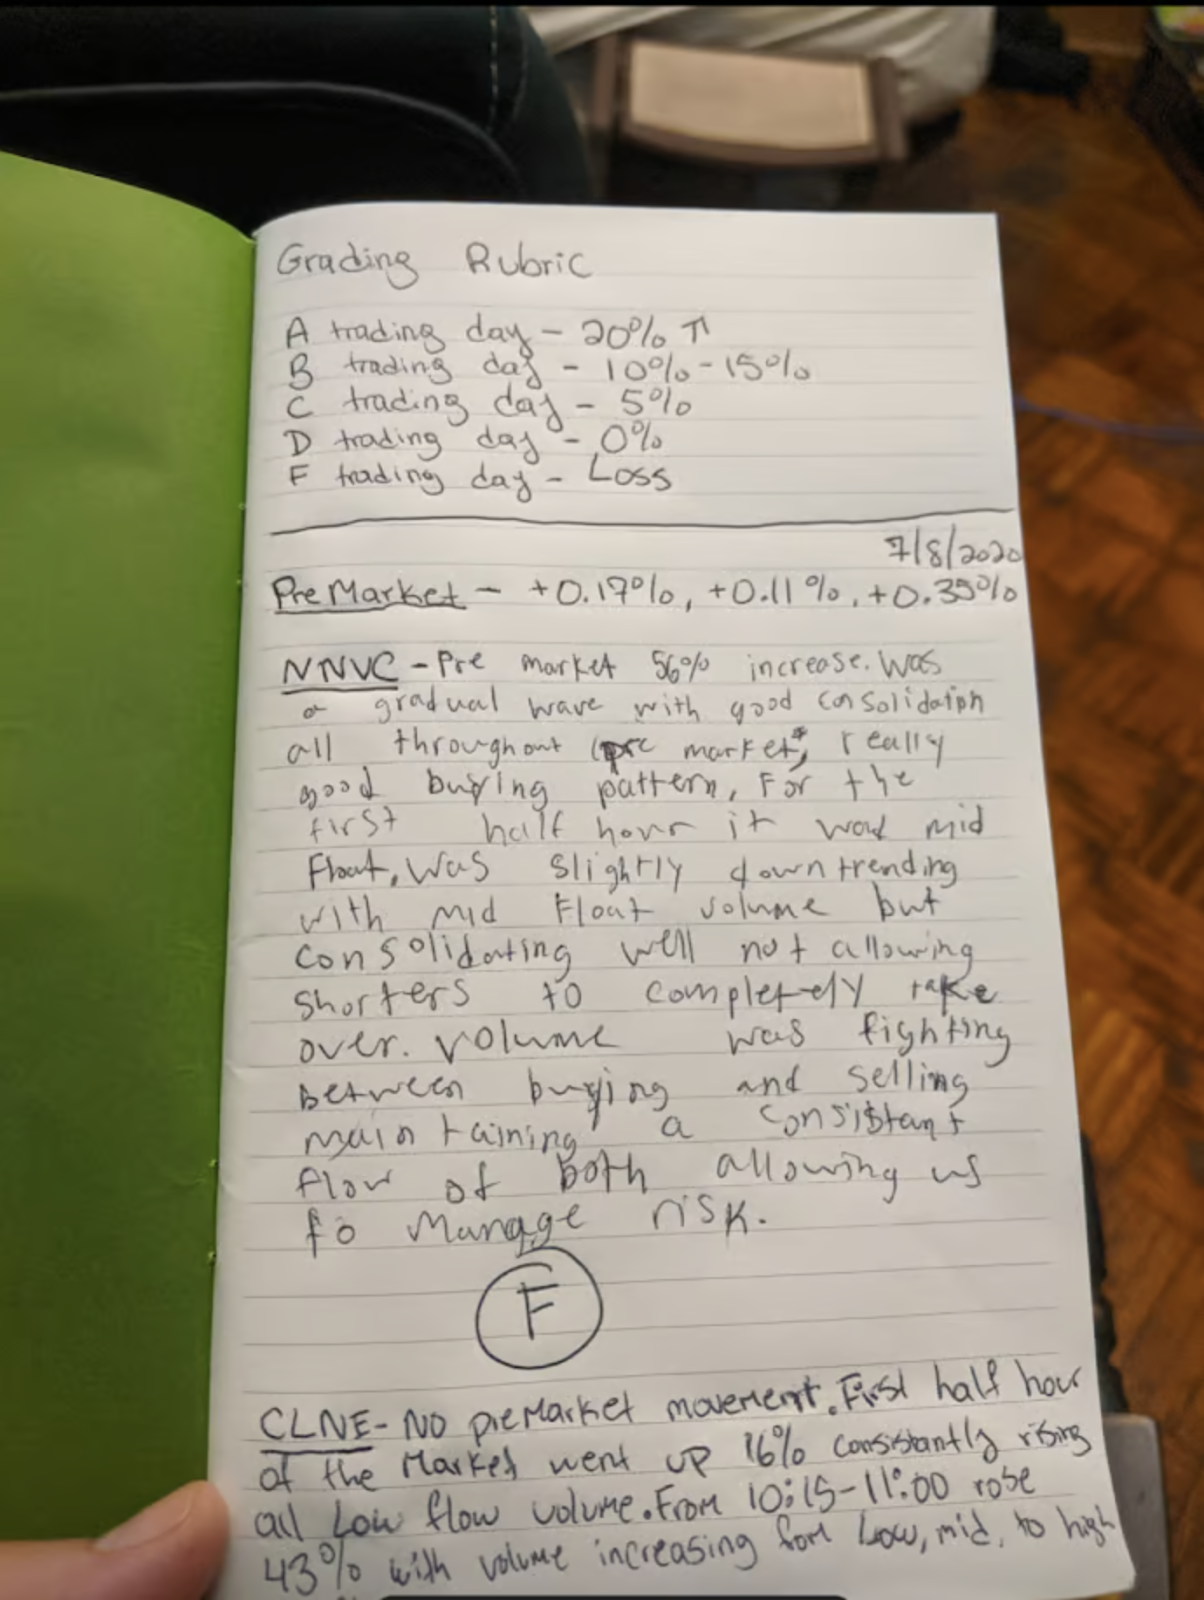 Grading Rubric
A trading day - 20% ↑
B trading day - 10% - 15%
C trading day - 5%
D trading day - 0%
F trading day - Loss
7/8/2020
PreMarket - +0.17%, +0.11%, +0.35%
NNVC - Pre market 56% increase. Was
a gradual wave with good consolidation
all throughout (pre market", really
good buying pattern, For the
first half hour it was mid
Float, was slightly downtrending
with mid Float volume but
consolidating well not allowing
shorters to completely take
over. volume was fighting
between buying and selling
maintaining a consistant
flow of both allowing us
to manage risk.
F
CLNE - NO preMarket movement. First half hour
of the Market went up 16% consistantly rising
all Low flow volume. From 10:15-11:00 rose
43% with volume increasing form Low, mid, to high